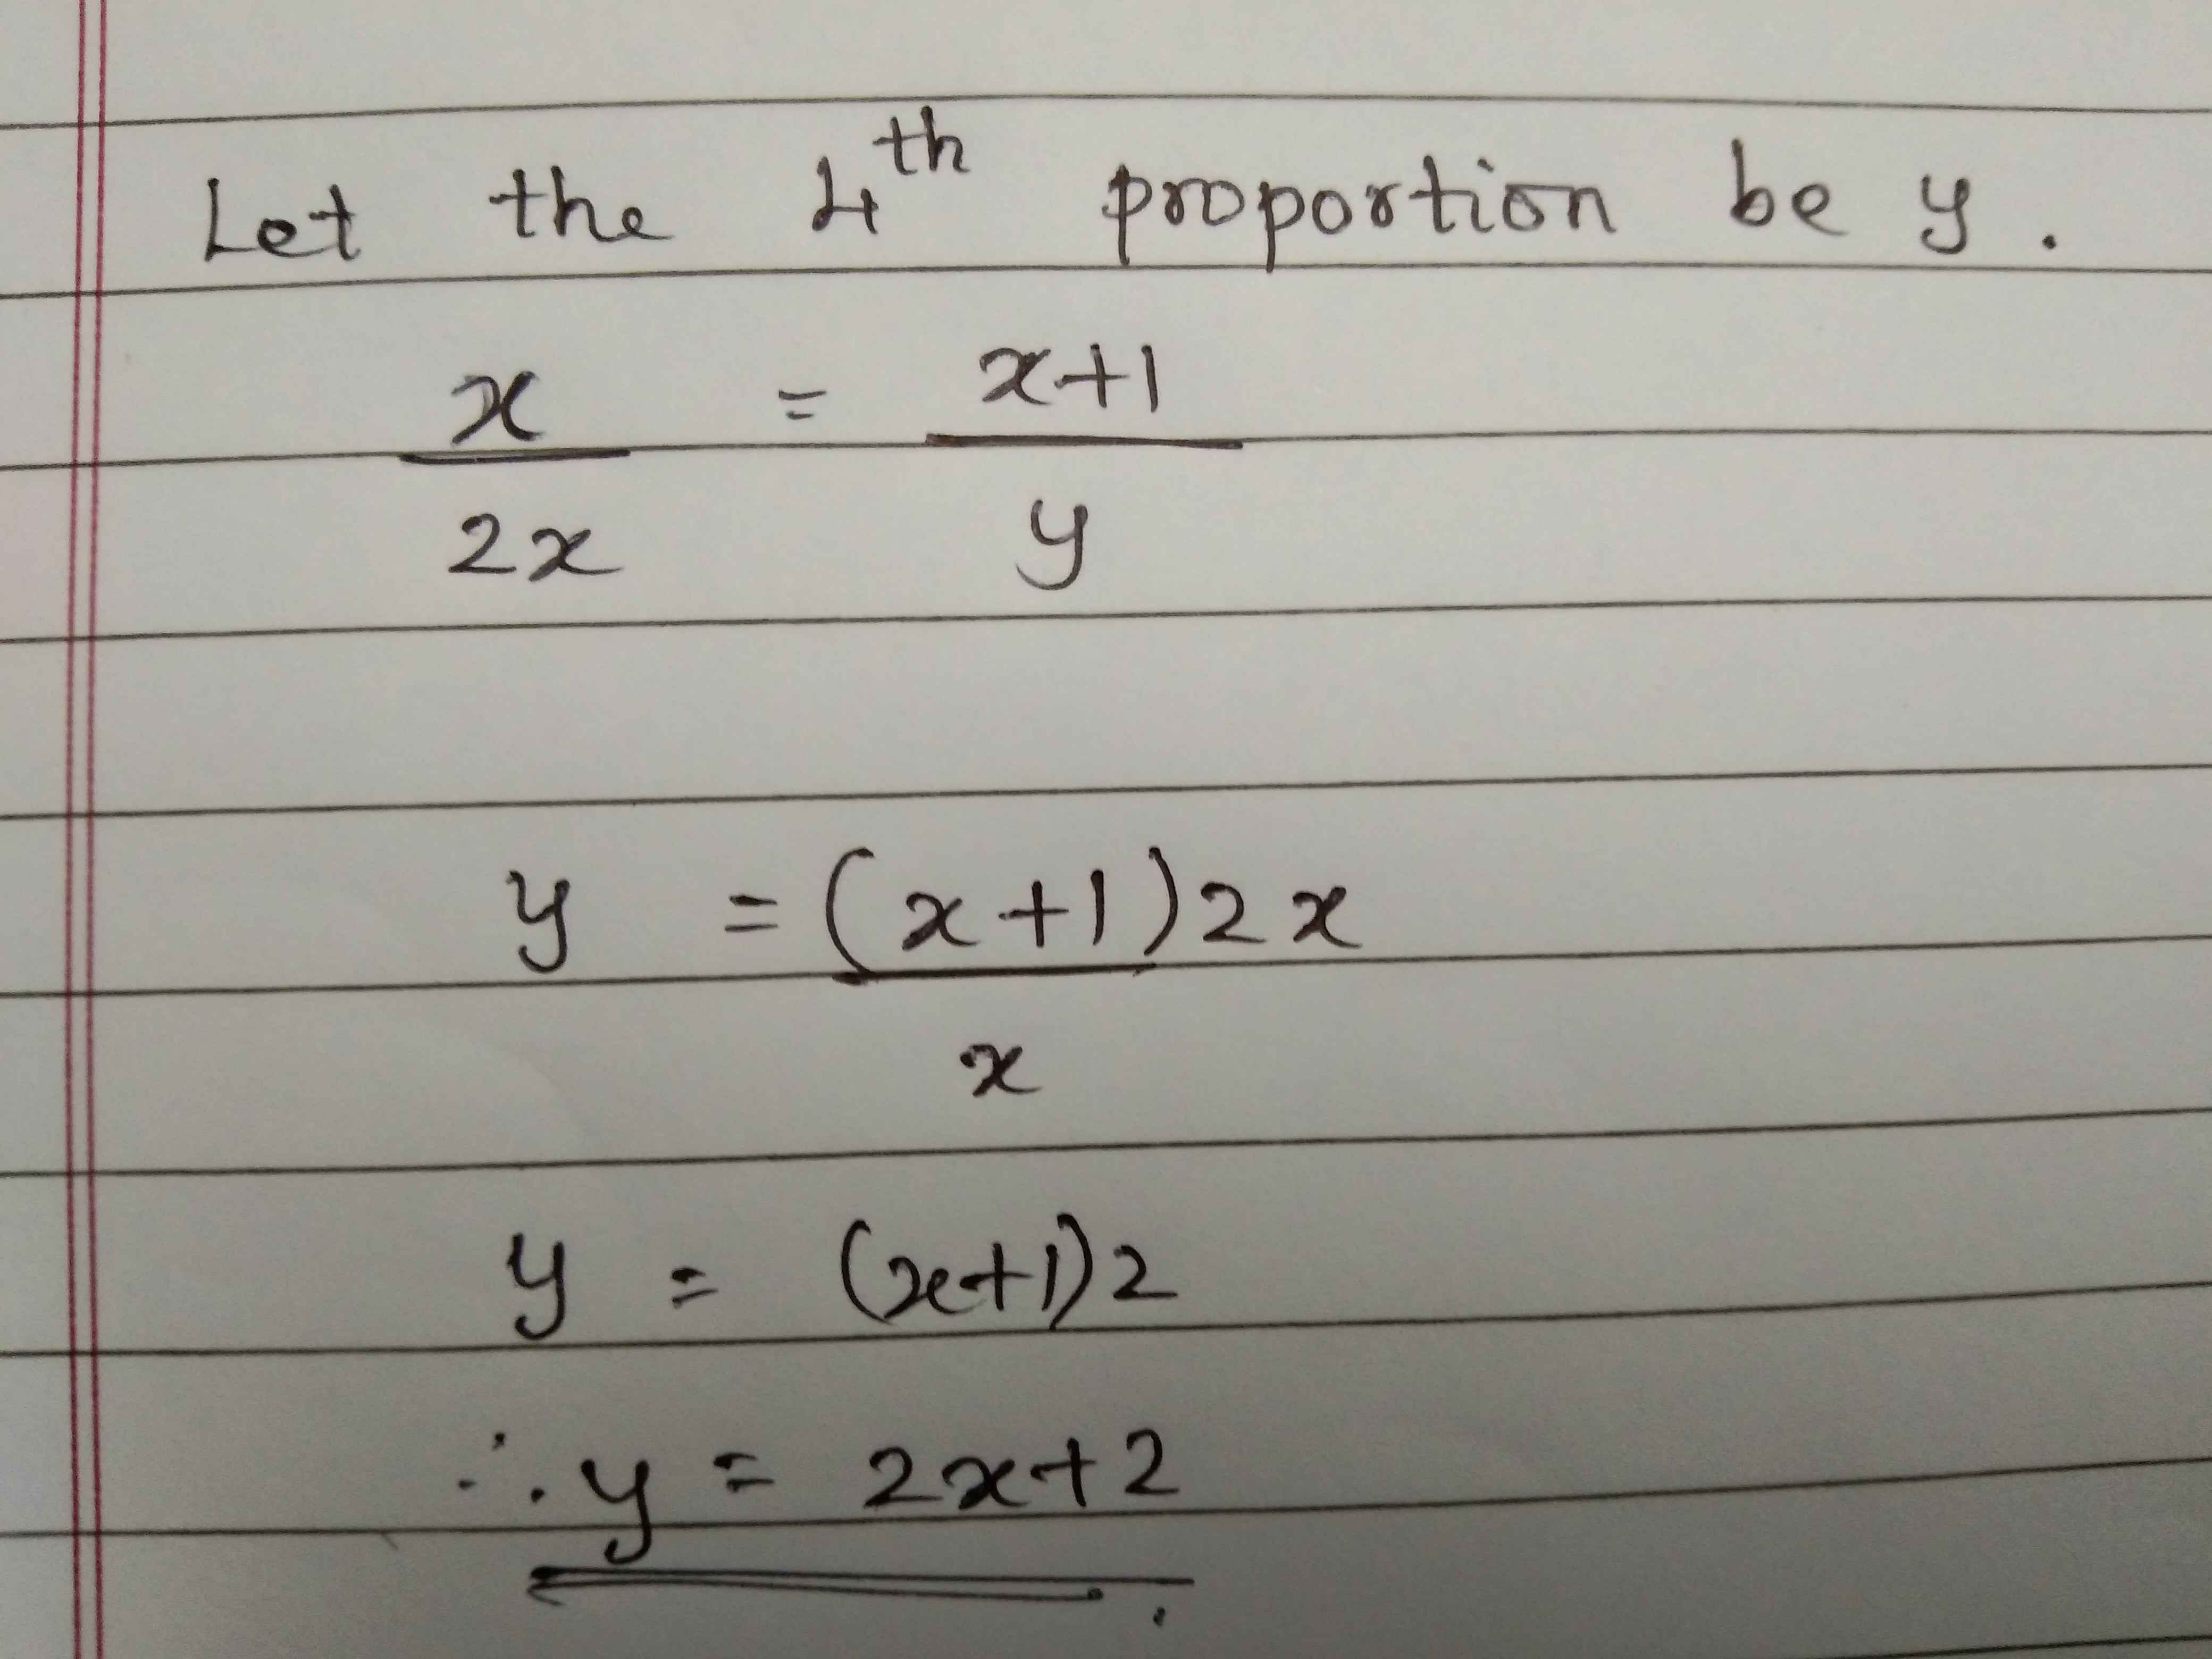 Let the 4th proportion be y.
x/2x = x+1/y
y = (x+1)2x/x
y = (x+1)2
∴ y = 2x+2